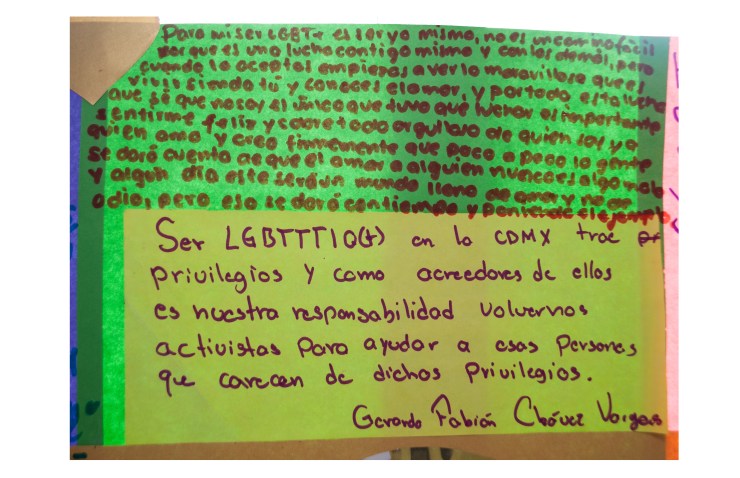 Para mi ser LGBT+ es ser yo mismo, no es un camino fácil
porque es una lucha contigo mismo y con los demás, pero
cuando lo aceptas empiezas a ver lo maravilloso que es
vivir siendo tú y conoces el amor, y por toda esta lucha
que sé que no soy el único que tuvo que luchar el importante
sentirme feliz y sobre todo orgulloso de quien soy y a
quien amo y creo firmemente que poco a poco la gente
se dará cuenta de que el amar a alguien nunca es algo malo
y algún día este será un mundo lleno de amor y no de
odio, pero eso se dará con tiempo y poniendo el ejemplo
Ser LGBTTTIQ(+) en la CDMX trae
privilegios y como acreedores de ellos
es nuestra responsabilidad volvernos
activistas para ayudar a esas personas
que carecen de dichos privilegios.
Gerardo Fabián Chávez Vargas